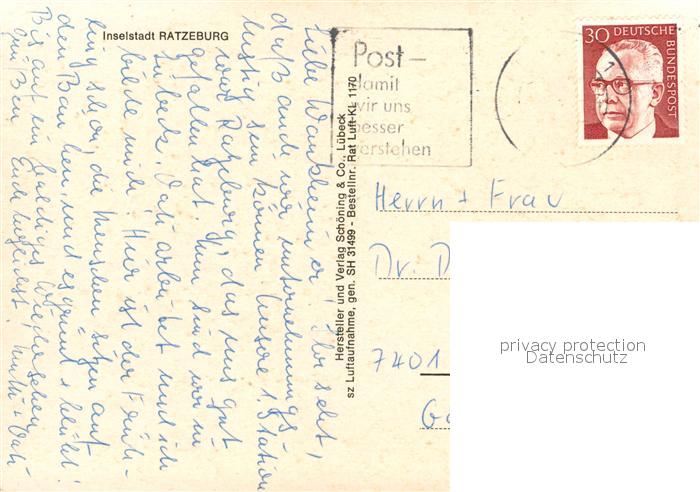 Inselstadt RATZEBURG
Liebe Wankheimer! Ihr seht,
daß auch wir unternehmungs-
lustig sein können. Unsere 1. Station
war Ratzeburg, das uns gut
gefallen hat. Nun sind wir in
Lübeck. Vati arbeitet und ich
bilde mich. Hier ist der Früh-
ling schon, die Menschen sitzen auf
den Bänken, und es grünt + blüht!
Bis auf ein baldiges Wiedersehen
grüßen Euch herzlichst, Mutti + Vati
Hersteller und Verlag Schöning & Co., Lübeck
sz Luftaufnahme, gen. SH 31499 - Bestellnr. Rat Luft-KL 1170
Post -
damit
wir uns
besser
verstehen
30 DEUTSCHE
BUNDESPOST
Herrn + Frau
Dr. D
7401
privacy protection
Datenschutz